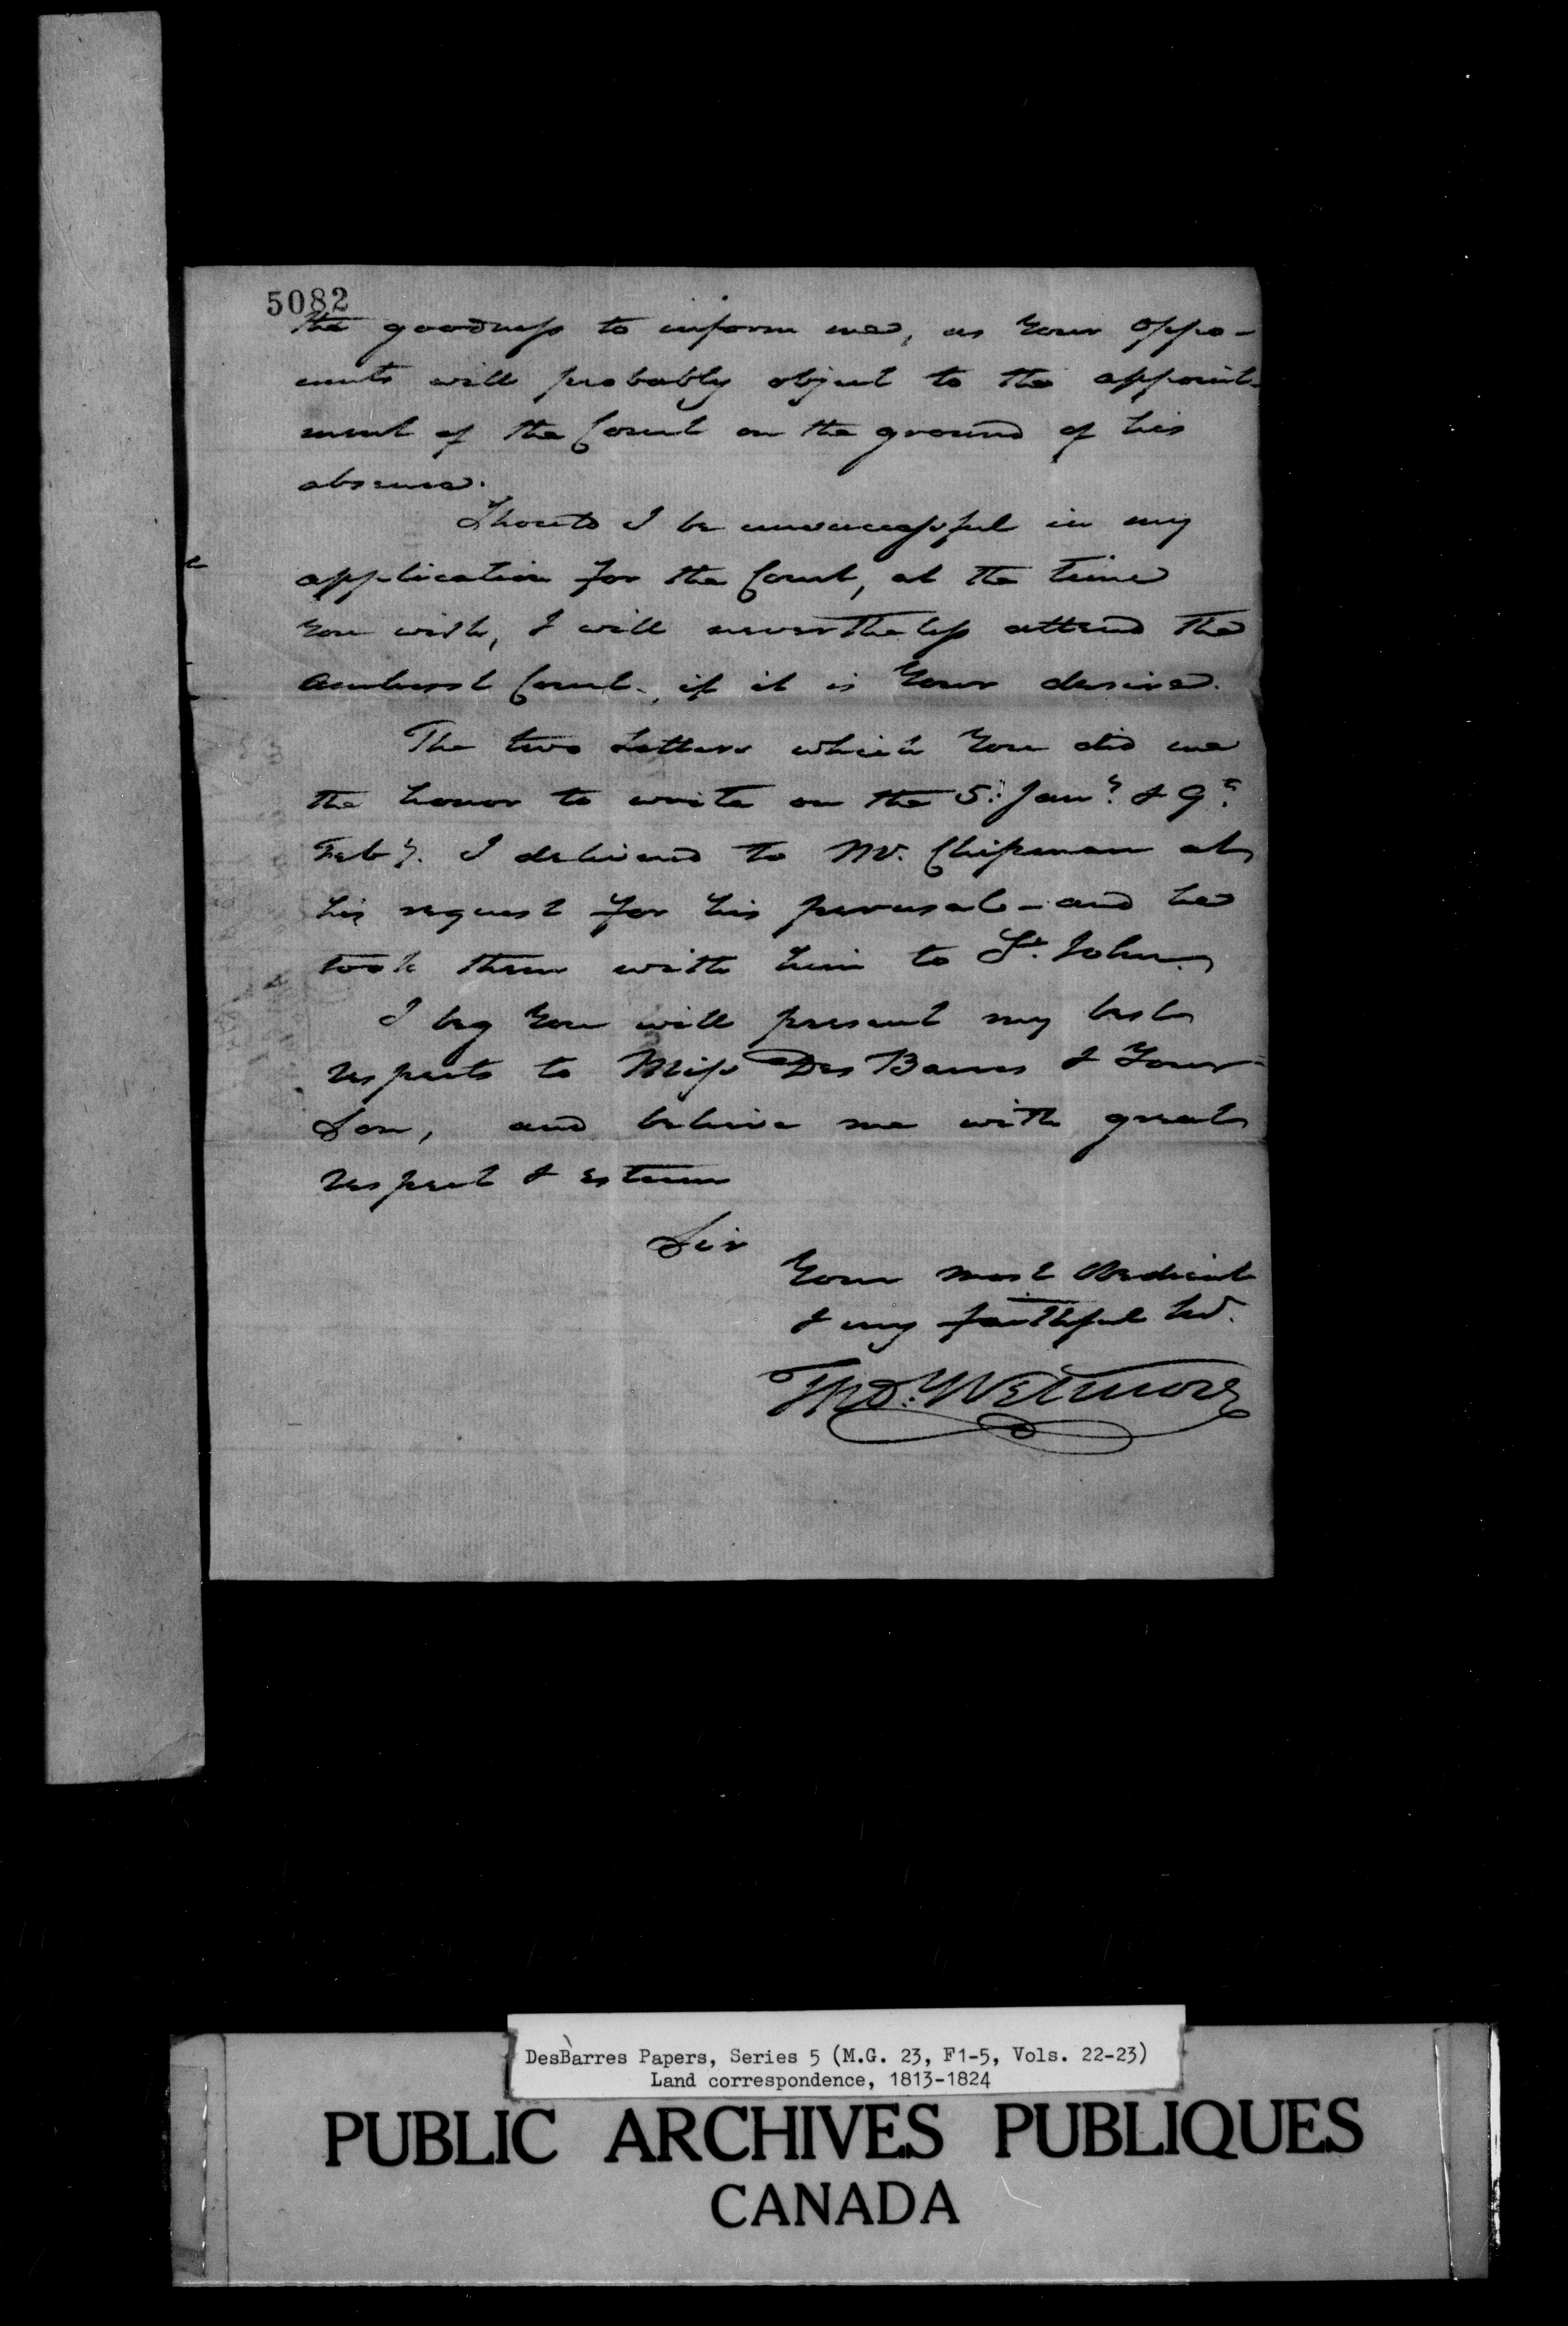 5082
the goodness to inform me, as Your Oppo-
nents will probably object to the appoint-
ment of the Court on the ground of his
absence.
Should I be unsuccessful in my
application for the Court, at the time
You wish, I will nevertheless attend the
Amherst Court, if it is Your desire.
The two Letters which You did me
the honor to write on the 5: Jany. & 9th.
Feby. I delivered to Mr. Chipman at
his request for his perusal - and he
took them with him to St. John.
I beg You will present my best
respects to Miss Des Barres & Your
Son, and believe me with great
respect & esteem
Sir
Your most Obedient
& very faithful
Thos. Wetmore
DesBarres Papers, Series 5 (M.G. 23, F1-5, Vols. 22-23)
Land correspondence, 1813-1824
PUBLIC ARCHIVES PUBLIQUES
CANADA